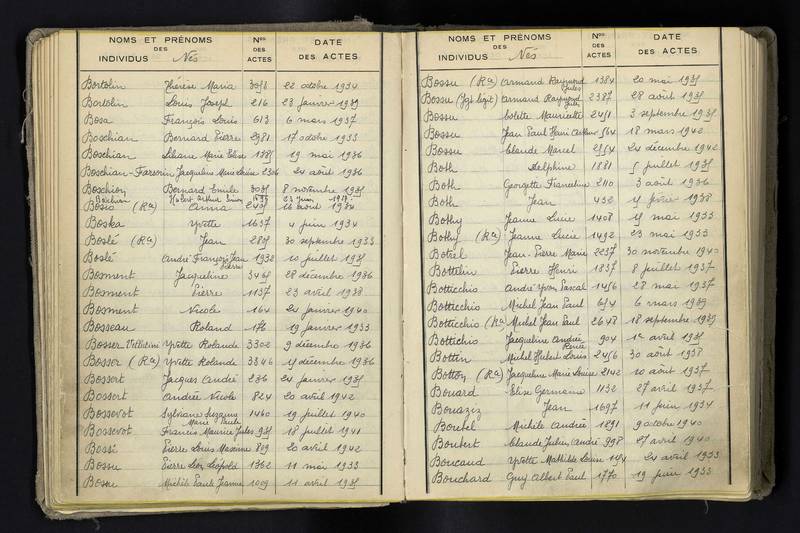 NOMS ET PRÉNOMS
DES
INDIVIDUS Nés
Nos
DES
ACTES
DATE
DES ACTES
Bortolin Thérèse Maria 22 octobre 1934
Bortolin Louis Joseph 216 23 janvier 1939
Bosa François Louis 613 6 mars 1937
Boschian Bernard Pierre 2981 17 octobre 1933
Boschian Liliane Marie Elise 19 mai 1936
Boschian-Farsorin Jacqueline Marie Louise 2306 24 août 1936
Boschion Bernard Emile 8 novembre
Boschian Hubert Arthur 23 juin
Bosio (Ra) Anna 16 août 1934
Boska Yvette 1637 4 juin 1934
Boslé (Ra) Jean 30 septembre 1933
Boslé André François Jean 1932 10 juillet
Pierre
Bosment Jacqueline 28 décembre 1936
Bosment Pierre 1137 23 avril 1938
Bosment Nicole 164 24 janvier 1940
Bosseau Roland 176 19 janvier 1933
Bosser Vellutini Yvette Rolande 3302 9 décembre 1936
Bosser (Ra) Yvette Rolande 3346 décembre 1936
Bossert Jacques André 236 24 janvier
Bossert Andrée Nicole 824 20 avril 1942
Bossevot Sylviane Suzanne 1460 19 juillet 1940
Marie Paule
Bossevot Francis Maurice Jules 18 juillet 1941
Bossi Pierre Louis Maxime 809 20 avril 1942
Bossu Pierre Léon Léopold 1362 11 mai 1933
Bossu Michèle Paule Jeanne 1009 11 avril
NOMS ET PRÉNOMS
DES
INDIVIDUS Nés
Nos
DES
ACTES
DATE
DES ACTES
Bossu (Ra) Armand Raymond 1384 20 mai
Jules
Bossu (Jgt légit) Armand Raymond 2387 28 août
Jules
Bossu Colette Mauricette 3 septembre
Bossu Jean Paul Henri Arthur 564 18 mars 1942
Bossu Claude Marcel 24 décembre 1942
Both Delphine 1881 juillet
Both Georgette Francine 2110 3 août 1936
Both Jean 432 février 1938
Bothy Jeanne Lucie 1408 mai 1933
Bothy (Ra) Jeanne Lucie 1492 23 mai 1933
Botrel Jean-Pierre Marie 2237 30 novembre 1940
Bottelin Pierre Henri 1837 8 juillet 1937
Botticchio André Yvon Pascal 1456 28 mai 1937
Botticchio Michel Jean Paul 654 6 mars 1939
Botticchio (Ra) Michel Jean Paul 2648 18 septembre 1939
Bottichio Jacqueline Andrée 904 avril
Renée
Bottin Michel Hubert Louis 2456 30 août 1938
Botton (Ra) Jacqueline Marie Louise 2142 10 août 1937
Bouard Elise Germaine 1132 27 avril 1937
Bouaziz Jean 1697 11 juin 1934
Boubel Michèle Andrée 1891 9 octobre 1940
Boubert Claude Julien André 898 27 avril 1940
Boucaud Yvette Mathilde Louise 24 avril 1933
Bouchard Guy Albert Paul 1770 19 juin 1933